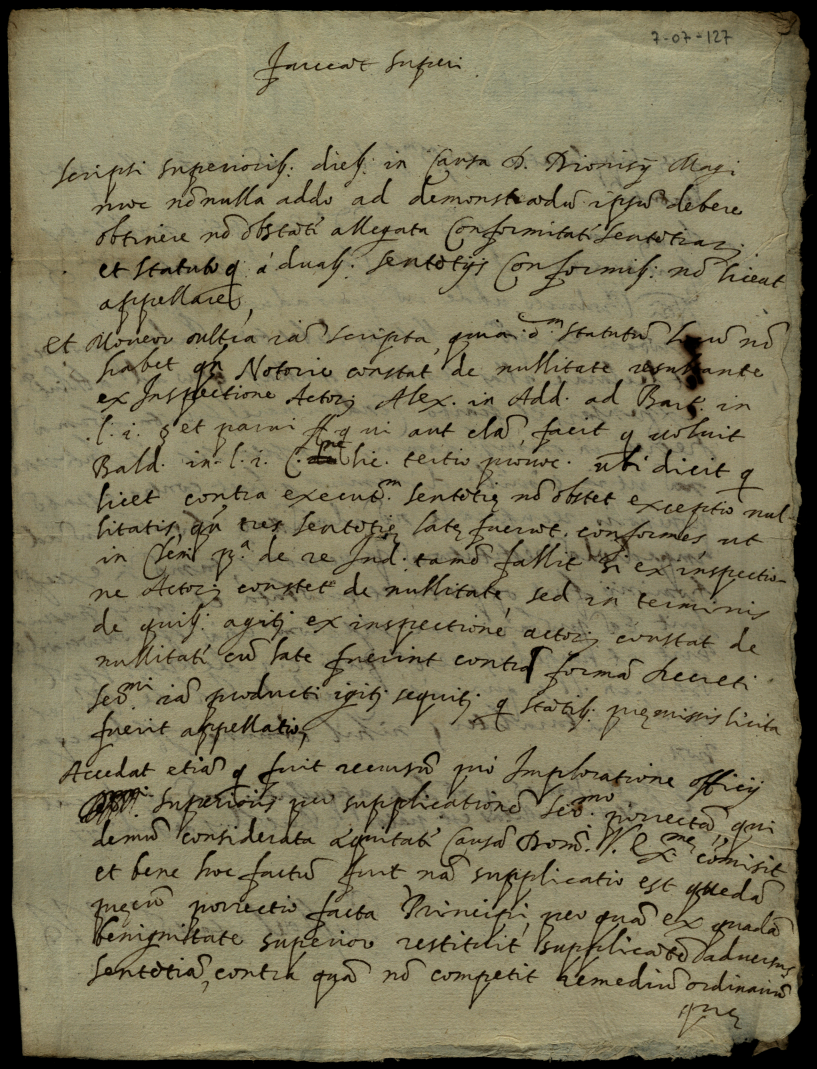 7-07-127
faveat superi
Scripsi superiorib: dieb: in Causa D. Dionisÿ Magi
nunc nõnulla addo ad demonstrãdũ ipsũ debere
obtinere nõ obstãti allegata Conformitati Sententiar;
et statuto q a duab: Sentẽtijs Conformib: nõ liceat
appellare,
et Moveor oultra iã scripta, quia d.m statutũ locũ nõ
habet qñ Notorie constat de nullitate resultante
ex Inspectione Actor; Alex. in Add. ad Bart. in
.l. i. § et parvi ff. qui aut clã, facit q voluit
Bald. in. l. i. C. ne lic. tertio provoc. ubi dicit q
licet contra execut.m Sentẽtię nõ obstet exceptio nul-
litatis qñ tres Sentẽtię latę fuerĩt. conformes ut
in Clem. p.a de re Jud. tamẽ fallit si ex inspectio-
ne Actor; constet de nullitate, sed in terminis
de quib: agit; ex inspectione actor; constat de
nullitati cũ late fuerint contra formã decreti
Ser.mi iã producti igit; sequit; q stãtib: pręmissis licita
fuerit appellatio,
Accedat etiã q fuit recursũ pro Imploratione officij
superioris per supplicationẽ Ser.mo porrectã, qui
demũ considerata aequitati Causã Domĩ. V. Ex.me cõmisit
et bene hoc factũ fuit nã supplicatio est quedã
pręcũ porrectio facta Principi, per quã ex quadã
benignitate superior restituit supplicãtẽ adversus
Sentẽtiã, contra quã nõ competit remediũ ordinariũ
quę